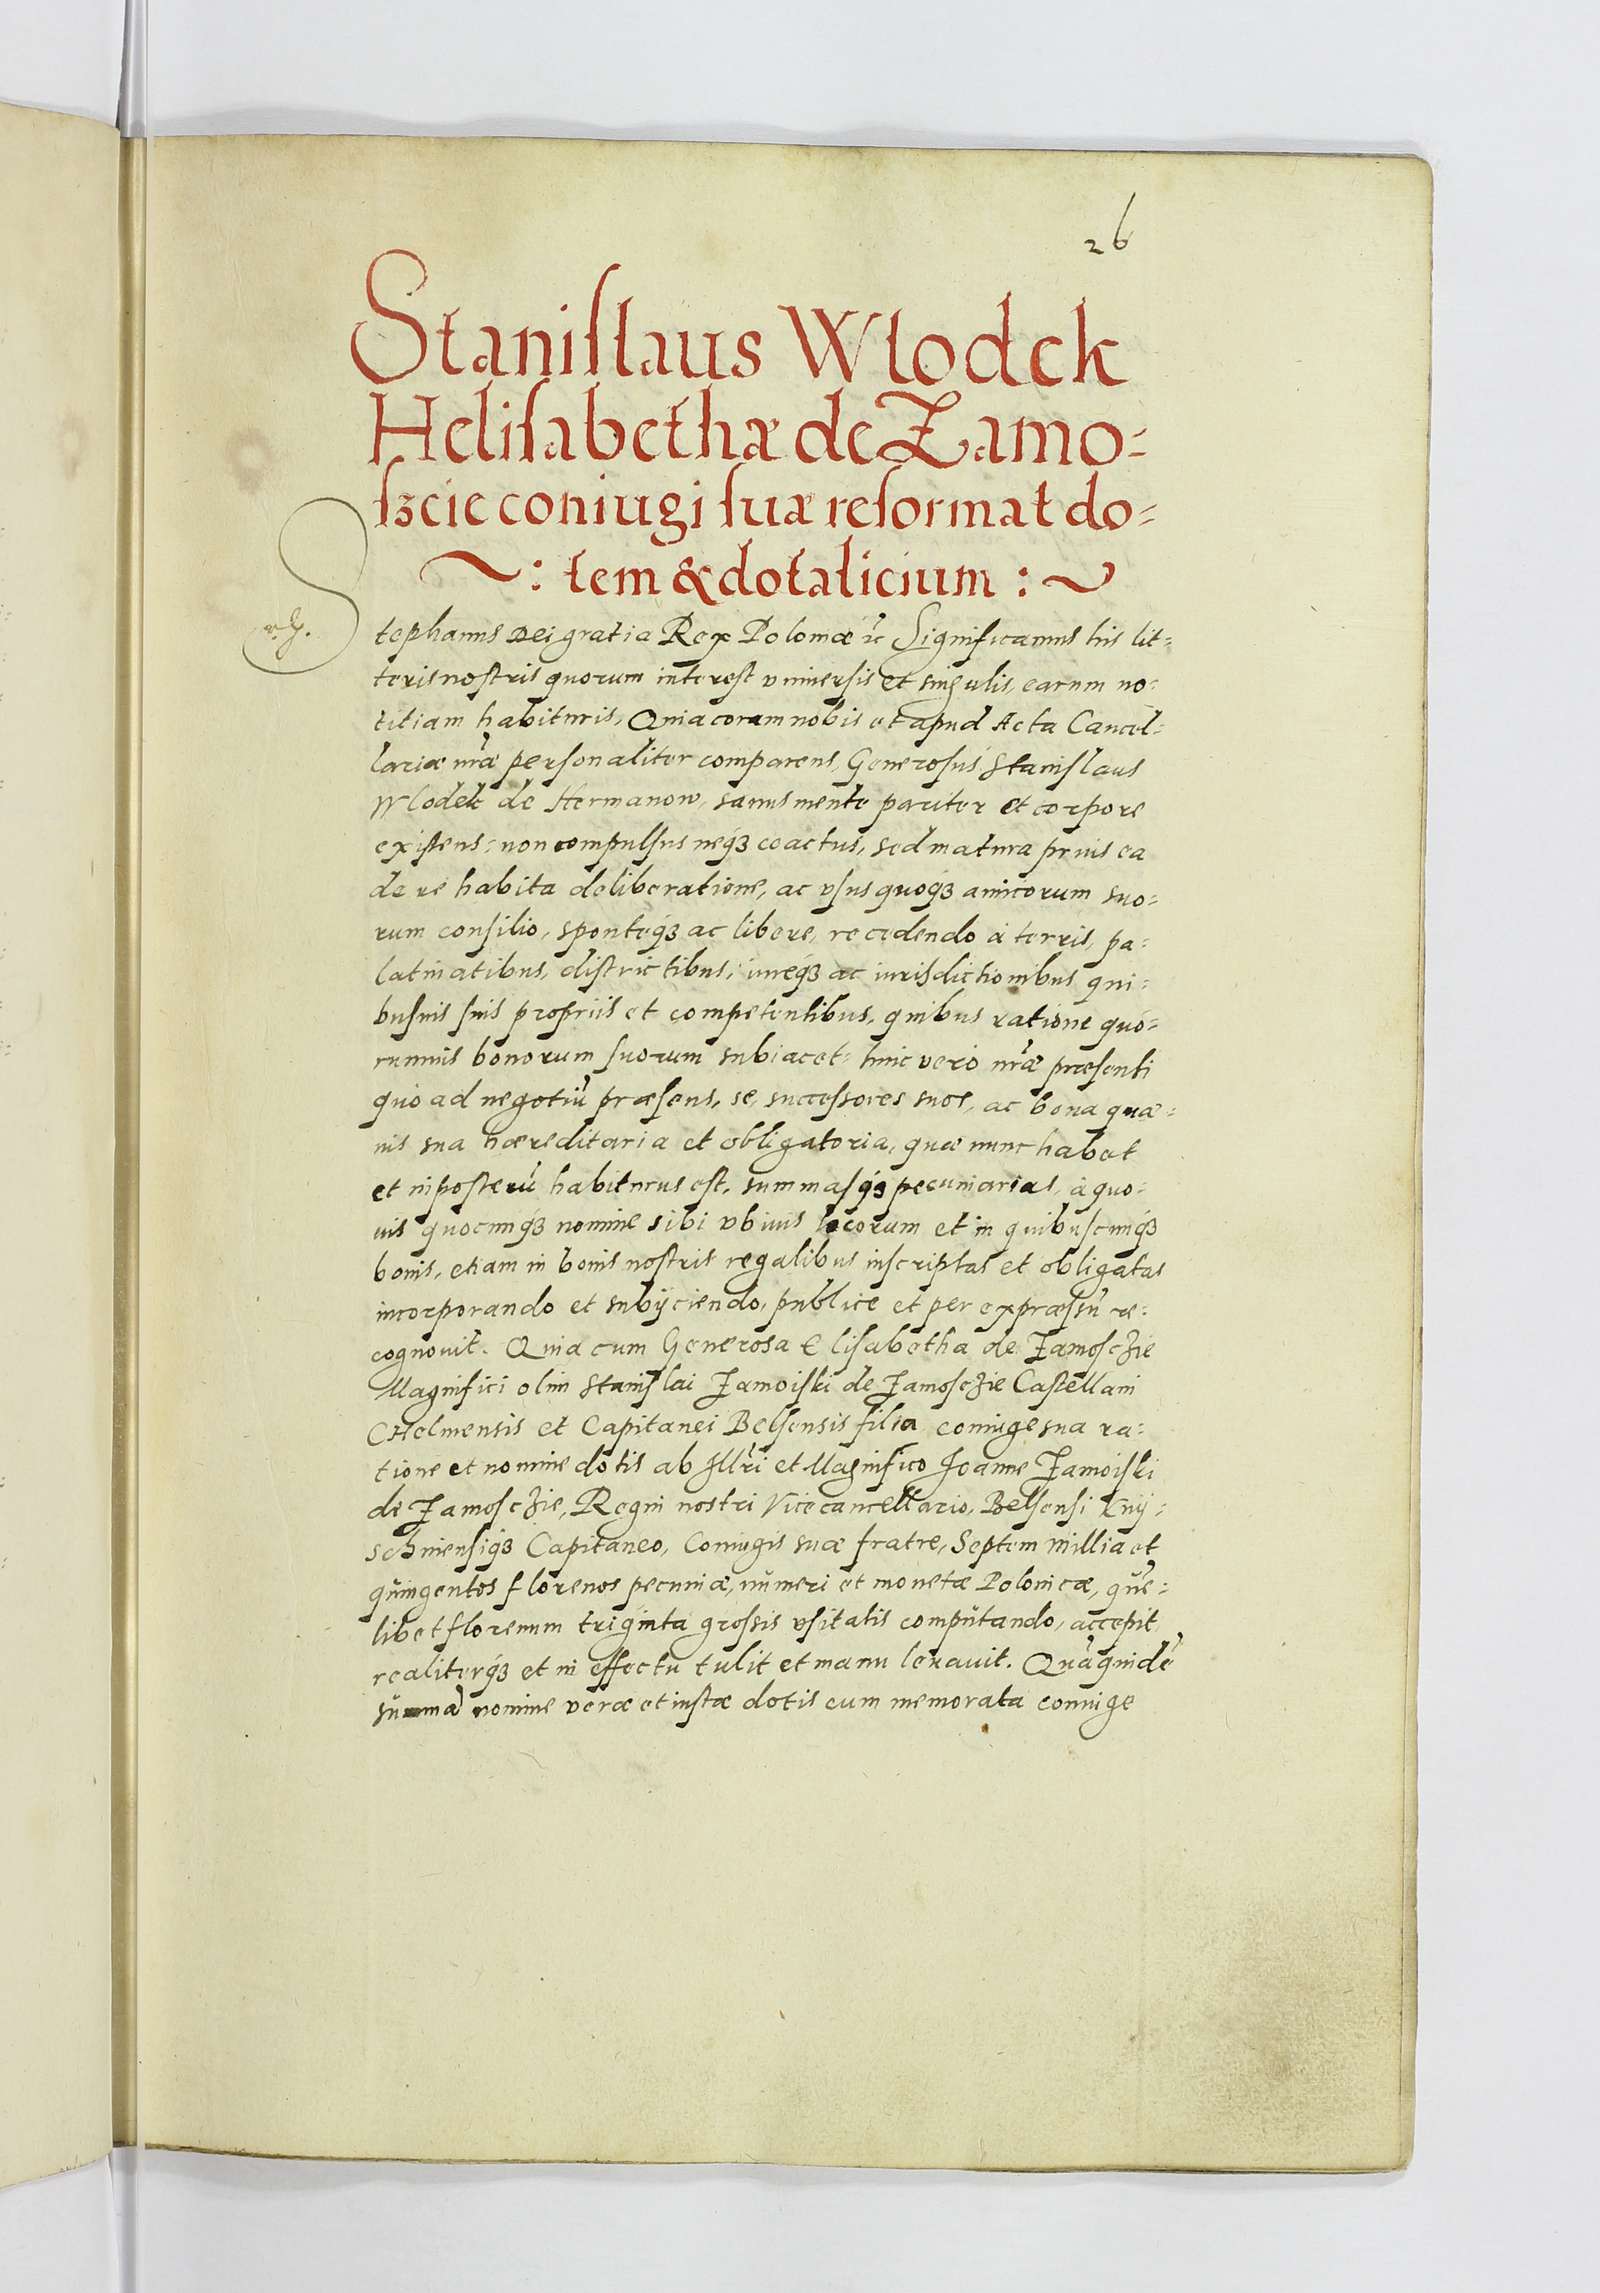 26
Stanislaus Wlodek
Helisabethæ de Zamo-
szcie coniugi suæ reformat do-
~: tem & dotalicium :~
Stephanus Dei gratia Rex Poloniæ &c Significamus his lit-
teris nostris quorum interest vniuersis et singulis, earum no-
titiam habituris, Quia coram nobis et apud Acta Cancel-
lariæ nrãe personaliter comparens, Generosus Stanislaus
Wlodek de Hermanow, sanus mente pariter et corpore
existens, non compulsus neqȝ coactus, sed matura prius ea
de re habita deliberatione, ac vsus quoqȝ amicorum suo-
rum consilio, sponteqȝ ac libere, recedendo à terris, pa-
latinatibus, districtibus, iureqȝ ac iurisdictionibus qui-
busuis suis propriis et competentibus, quibus ratione quo-
rumuis bonorum suorum subiacet, huic vero nrãe præsenti
quo ad negotiũ præsens, se, successores suos, ac bona quæ-
uis sua hæreditaria et obligatoria, quæ nunc habet
et in posterũ habiturus est, summasqȝ pecuniarias, à quo-
uis quocunqȝ nomine sibi vbiuis locorum et in quibuscunqȝ
bonis, etiam in bonis nostris regalibus inscriptas et obligatas
incorporando et subijciendo, publice et per expræssũ re-
cognouit. Quia cum Generosa Elisabetha de Zamosczie
Magnifici olim Stanislai Zamoiski de Zamosczie Castellani
CHelmensis et Capitanei Belsensis filia coniuge sua ra-
tione et nomine dotis ab Illr̃i et Magnifico Joanne Zamoiski
de Zamosczie, Regni nostri Vicecancellario, Belsensi Knij-
schinensiqȝ Capitaneo, Coniugis suæ fratre, Septem millia et
quingentos florenos pecuniæ, numeri et monetæ Polonicæ, quẽ-
libet florenum triginta grossis vsitatis computando, accepit,
realiterqȝ et in effectu tulit et manu leuauit. Quã quidẽ
summã nomine veræ et iustæ dotis cum memorata coniuge